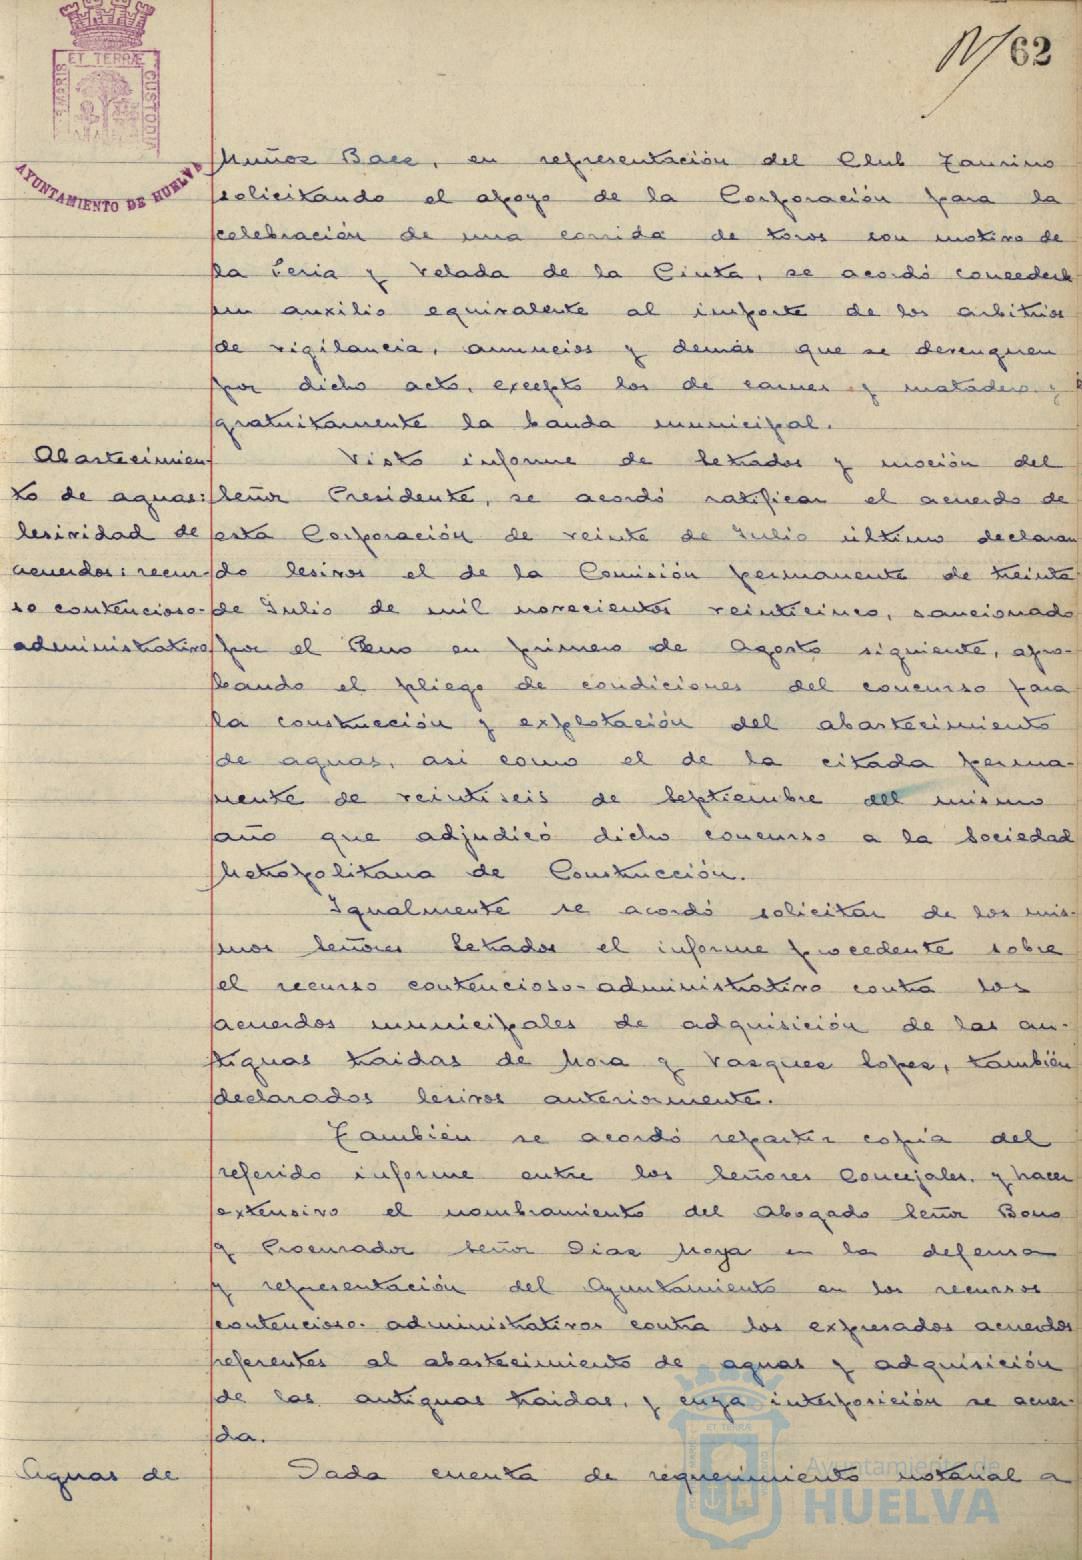 62
ET TERRÆ
MARIS
CUSTODIA
AYUNTAMIENTO DE HUELVA
Muñoz Baez, en representación del Club Taurino
solicitando el apoyo de la Corporación para la
celebración de una corrida de toros con motivo de
la Feria y Velada de la Cinta, se acordó concederle
un auxilio equivalente al importe de los arbitrios
de vigilancia, anuncios y demás que se devenguen
por dicho acto, excepto los de carnes y matadero y
gratuitamente la banda municipal.
Abastecimien-
to de aguas:
lesividad de
acuerdos: recur-
so contencioso-
administrativo
Visto informe de Letrados y moción del
Señor Presidente, se acordó ratificar el acuerdo de
esta Corporación de veinte de Julio último declaran
do lesivos el de la Comisión permanente de treinta
de Julio de mil novecientos veinticinco, sancionado
por el Pleno en primero de Agosto siguiente, apro-
bando el pliego de condiciones del concurso para
la construcción y explotación del abastecimiento
de aguas, asi como el de la citada perma-
nente de veintiseis de Septiembre del mismo
año que adjudicó dicho concurso a la Sociedad
Metropolitana de Construcción.
Igualmente se acordó solicitar de los mis-
mos Señores Letrados el informe procedente sobre
el recurso contencioso-administrativo contra los
acuerdos municipales de adquisición de las an-
tiguas traidas de Mora y Vazquez Lopez, también
declarados lesivos anteriormente.
También se acordó repartir copia del
referido informe entre los Señores Concejales, y hacer
extensivo el nombramiento del Abogado Señor Bono
y Procurador Señor Diaz Moya en la defensa
y representación del Ayuntamiento en los recursos
contencioso-administrativos contra los expresados acuerdos
referentes al abastecimiento de aguas y adquisición
de las antiguas traidas, y cuya interposición se acuer-
da.
Aguas de
Dada cuenta de requerimiento notarial a
Ayuntamiento de
HUELVA